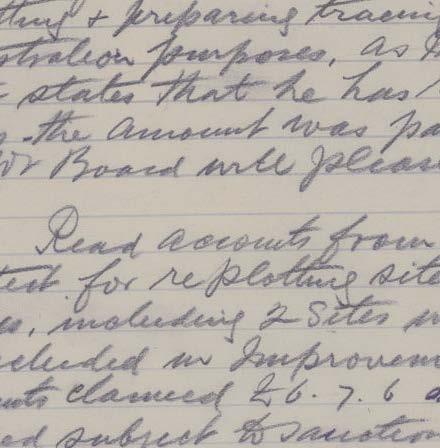 tting & preparing tracin
stration purposes, as
states that he has
the amount was pa
Board will please
Read accounts from
tect for replotting site
es, including 2 Sites
cluded in Improvem
nts claimed £6.7.6
ed subject to sanction